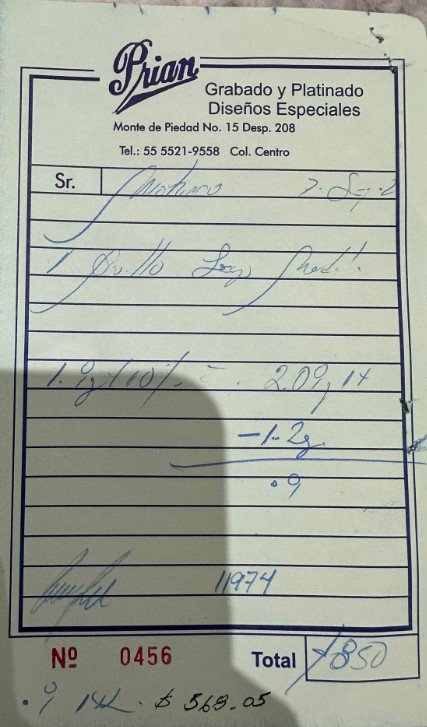 Prian
Grabado y Platinado
Diseños Especiales
Monte de Piedad No. 15 Desp. 208
Tel.: 55 5521-9558 Col. Centro
Sr.
1
1.9g +10% = 2.09g 14
-1.2g
.9
11974
Nº 0456 Total 850
.9 14k $ 568.05